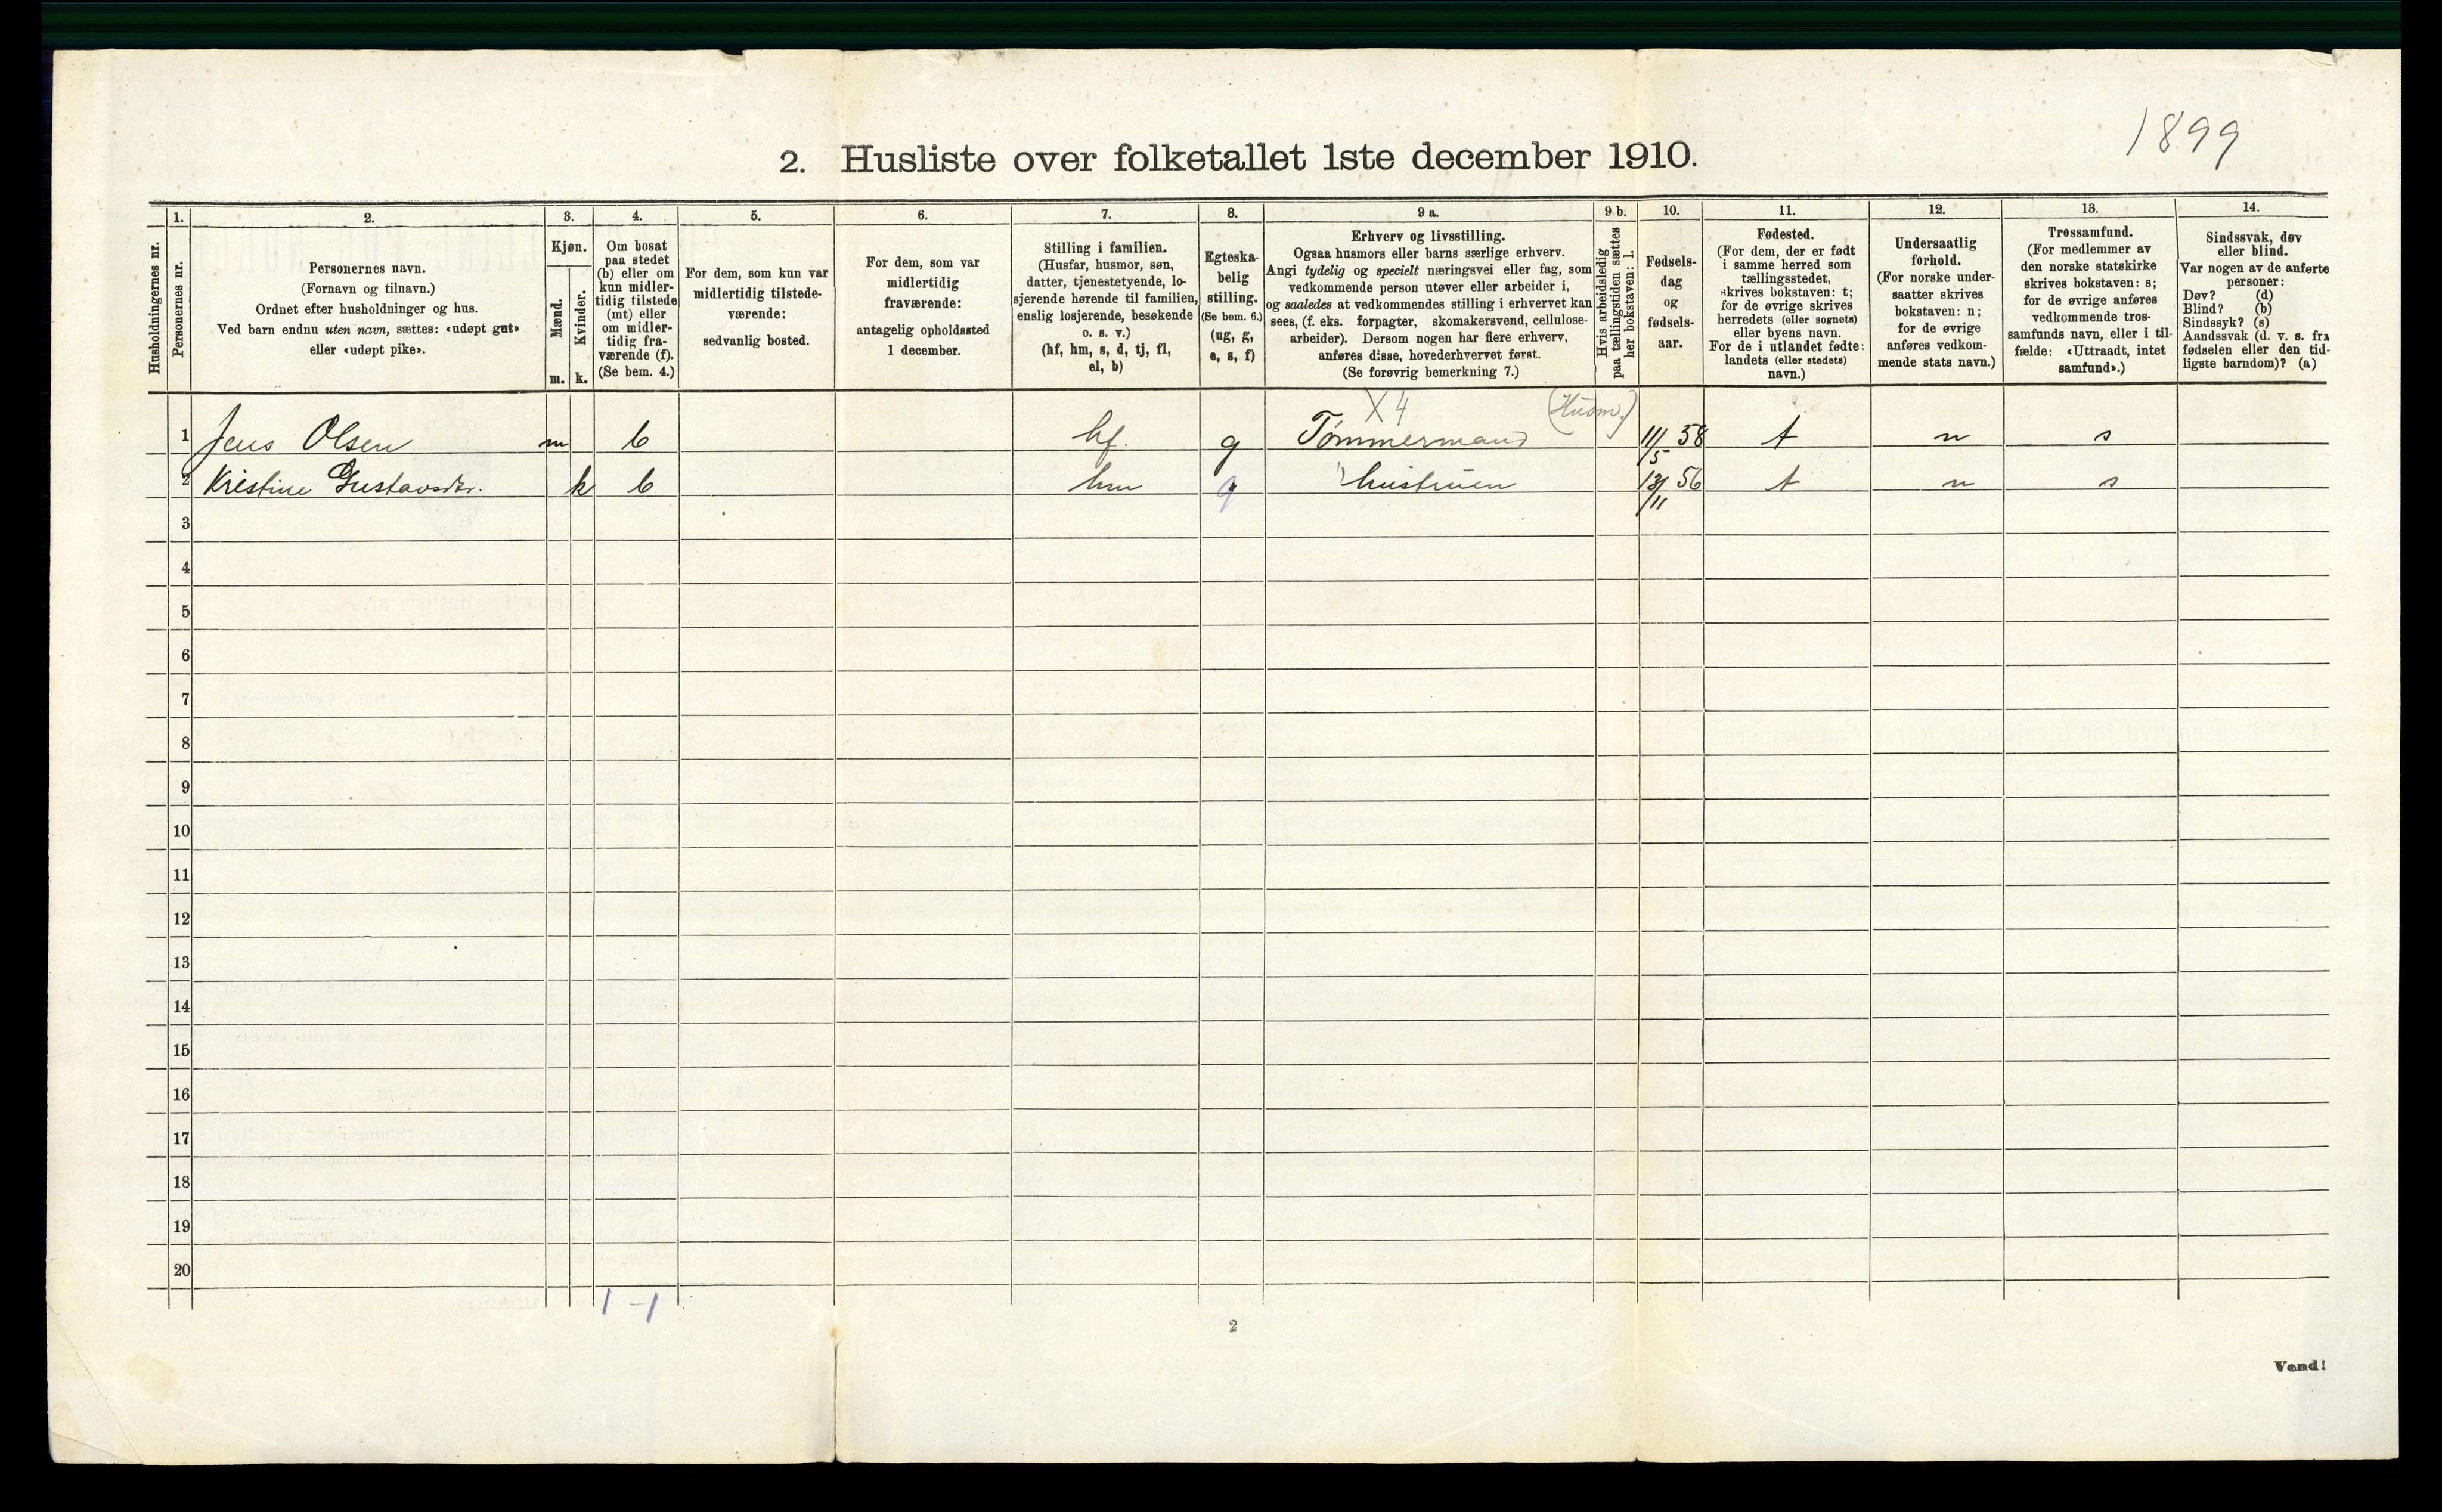 1899
2. Husliste over folketallet 1ste december 1910.
Husholdningernes nr.
1.
Personernes nr.
2.
Personernes navn.
(Fornavn og tilnavn.)
Ordnet efter husholdninger og hus.
Ved barn endnu uten navn, sættes: «udøpt gut»
eller «udøpt pike».
3.
Kjøn.
Mænd.
m.
Kvinder.
k.
4.
Om bosat
paa stedet
(b) eller om
kun midler-
tidig tilstede
(mt) eller
om midler-
tidig fra-
værende (f).
(Se bem. 4.)
5.
For dem, som kun var
midlertidig tilstede-
værende:
sedvanlig bosted.
6.
For dem, som var
midlertidig
fraværende:
antagelig opholdssted
1 december.
7.
Stilling i familien.
(Husfar, husmor, søn,
datter, tjenestetyende, lo-
sjerende hørende til familien,
enslig losjerende, besøkende
o. s. v.)
(hf, hm, s, d, tj, fl,
el, b)
8.
Egteska-
belig
stilling.
(Se bem. 6.)
(ug, g,
e, s, f)
9 a.
Erhverv og livsstilling.
Ogsaa husmors eller barns særlige erhverv.
Angi tydelig og specielt næringsvei eller fag, som
vedkommende person utøver eller arbeider i,
og saaledes at vedkommendes stilling i erhvervet kan
sees, (f. eks. forpagter, skomakersvend, cellulose-
arbeider). Dersom nogen har flere erhverv,
anføres disse, hovederhvervet først.
(Se forøvrig bemerkning 7.)
9 b.
Hvis arbeidsledig
paa tællingstiden sættes
her bokstaven: l.
10.
Fødsels-
dag
og
fødsels-
aar.
11.
Fødested.
(For dem, der er født
i samme herred som
tællingsstedet,
skrives bokstaven: t;
for de øvrige skrives
herredets (eller sognets)
eller byens navn.
For de i utlandet fødte:
landets (eller stedets)
navn.)
12.
Undersaatlig
forhold.
(For norske under-
saatter skrives
bokstaven: n;
for de øvrige
anføres vedkom-
mende stats navn.)
13.
Trossamfund.
(For medlemmer av
den norske statskirke
skrives bokstaven: s;
for de øvrige anføres
vedkommende tros-
samfunds navn, eller i til-
fælde: «Uttraadt, intet
samfund».)
14.
Sindssvak, døv
eller blind.
Var nogen av de anførte
personer:
Døv? (d)
Blind? (b)
Sindssyk? (s)
Aandssvak (d. v. s. fra
fødselen eller den tid-
ligste barndom)? (a)
X 4 (Husm.)
1 Jens Olsen m b hf. g Tømmermand 11/5 58 t n s
2 Kristine Gustavsdtr. k b hm g hustruen 13/11 56 t n s
3
4
5
6
7
8
9
10
11
12
13
14
15
16
17
18
19
20
1 - 1
2
Vend!